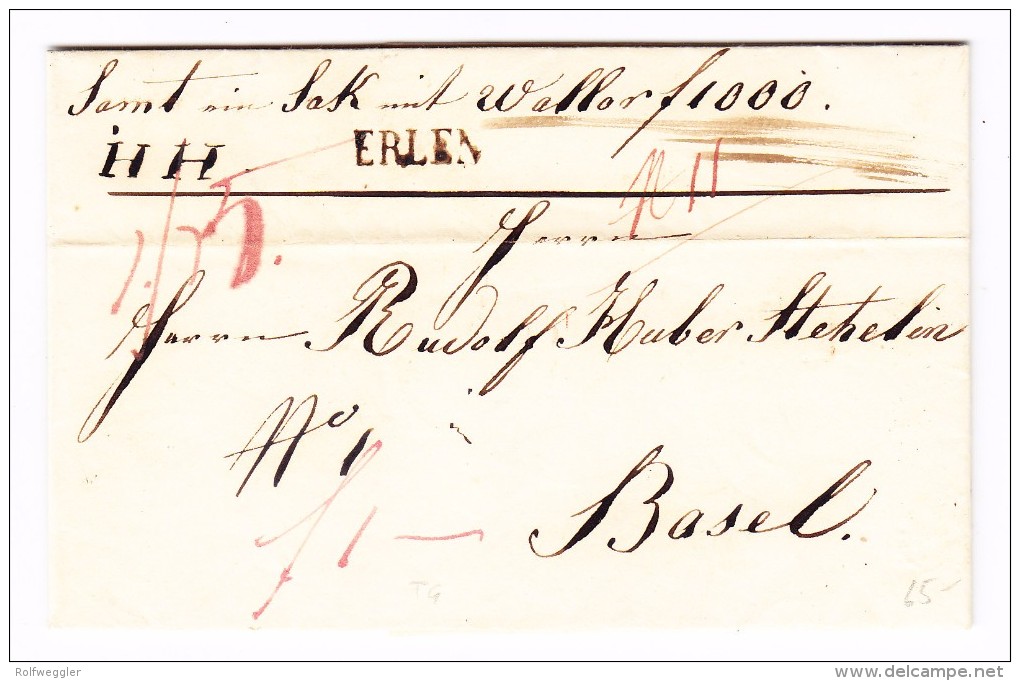 Samt ein Sak mit Wallor f 1000.
HH
ERLEN
N 11
Herrn
Herrn Rudolf Huber Stehelin
No 1
f 1 —
Basel.
TG
65-
Rolfweggler
www.delcampe.net